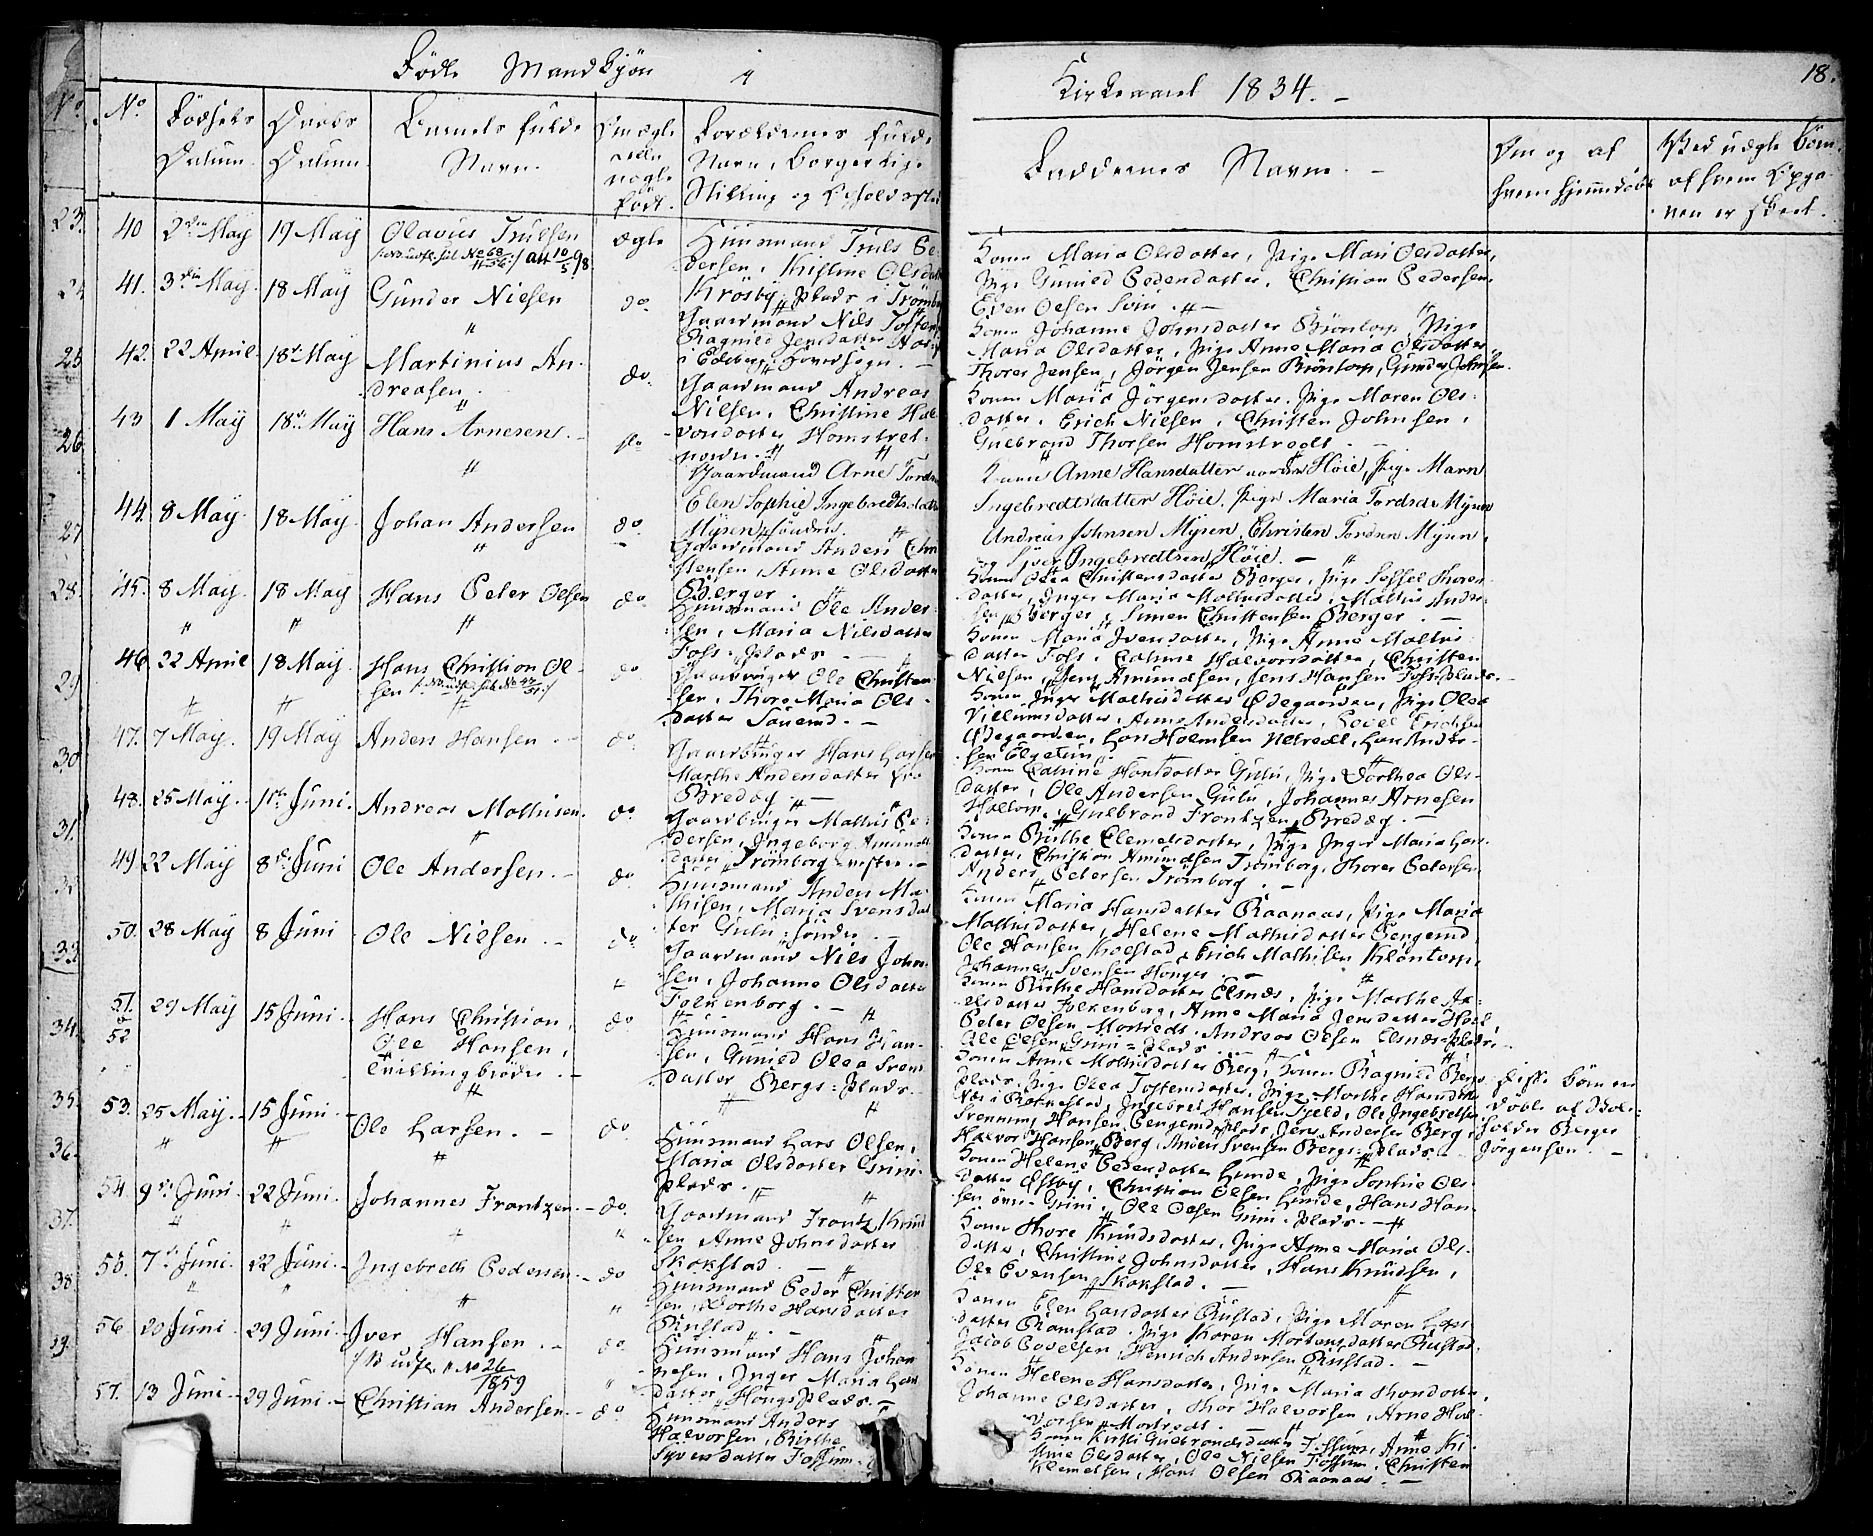 Födte Mandkjön i
Kirkeaaret 1834. -
18.
No
No
Födsels
Datum.
Daabs
Datum.
Barnets fulde
Navn.
Om ægte
eller
uægte
födt.
Forældrenes fulde
Navn, borgerlige
Stilling og Opholdssted
Faddernes Navne. -
Om og af
hvem hjemmedöbt
Ved uægte Börn
af hvem Opga-
ven er skeet.
40
2den May
19 May
Olavus Trulsen
ægte
Huusmand Truls Pe-
dersen, Kristine Olsdatter
Krosby Plads i Trömborg
Konen Maria Olsdatter, Pige Mari Olsdatter,
Pige Gunild Pedersdatter, Christian Pedersen
Even Olsen
41.
3die May.
18 May
Gunder Nielsen
do.
Gaardmand Nils Tosten
Ragnild Jensdatter
i Edsberg Sogn. -
Konen Johanne Johnsdatter Bröntorp, Pige
Maria Olsdatter, Pige Anne Maria Olsdatter
Thorer Jensen, Jörgen Jensen Bröntorp, Gunder Johnsen.
42.
22 April.
18de May
Martinius An-
dreasen.
do.
Gaardmand Andreas
Nilsen, Christine Hal-
vorsdatter Homstvet
nordre.
Konen Maria Jörgensdatter, Pige Maren Ols-
datter, Erich Nielsen, Christen Johnsen,
Gulbrand Thorsen Homstvedt. -
43
1 May
18de May
Hans Arnesen. -
do
Gaardmand Arne Tordsen
Elen Sophie Ingebredtsdatter
Mysen söndre.
Konen Anne Hansdatter nordre Höie, Pige Maren
Ingebredtsdatter Höie, Pige Maria Tordsd. Mysen
Andreas Johnsen Mysen, Christen Tordsen Mysen,
og Syver Ingebredtsen Höie. -
44.
8 May.
18 May.
Johan Andersen
do.
Gaardmand Anders Chri-
stensen, Anne Olsdatter
Berger.
Konen Olea Christensdatter Berger, Pige Sessel Thores-
datter, Inger Maria Mathisdatter, Mathis Ander-
sen Berger, Simen Christensen Berger. -
45.
8 May.
18 May
Hans Peter Olsen
do
Huusmand Ole Ander-
sen, Maria Nilsdatter
Foss-plads
Konen Maria Iversdatter, Pige Anne Mathis-
datter Foss, Cathrine Halvorsdatter, Christen
Nielsen, Jens Amundsen, Jens Hansen Foss-plads. -
46.
22 April
18 May.
Hans Christian Ol-
sen
do
Gaardbruger Ole Christen-
sen, Thore Maria Ols-
datter
Konen Inger Mathisdatter Ödegaarden, Pige Olea
Villumsdatter, Anne Andersdatter, Povel Erichsen
Ödegaarden, Lars Holmsen, Lars Ander-
sen
47.
7 May.
19 May
Anders Hansen. -
do.
Gaardbruger Hans Larsen
Marthe Andersdatter
Bredög -
Konen Cathrine Hansdatter Gulu, Pige Dorthea Ols-
datter, Ole Andersen Gulu, Johannes Arnesen
Haltorp, Gulbrand Frantzen Bredög. -
48.
25 May.
1ste Juni.
Andreas Mathisen.
do.
Gaardbruger Mathis Pe-
dersen, Ingeborg Amunds-
datter Trömborg vestre. -
Konen Birthe Clemetsdatter, Pige Inger Maria Lars-
datter, Christian Amundsen Trömborg, Thorer Petersen
Anders Petersen Trömborg. -
49
22 May
8de Juni
Ole Andersen. -
do.
Huusmand Anders Ma-
thisen, Maria Svensdat-
ter Gulu söndre. -
Konen Maria Hansdatter Raanaas, Pige Maria
Mathisdatter, Helene Mathisdatter
Ole Hansen Kolstad, Erich Mathisen Klöntorp,
Johannes Svensen
50.
28 May
8 Juni
Ole Nielsen. -
do
Gaardmand Nils John-
sen, Johanne Olsdatter
Folkenborg. -
Konen Birthe Hansdatter Elsnæs, Pige Marthe Ax-
elsdatter Folkenborg, Anne Maria Jensdatter Hoel,
Peter Olsen Mortvedt, Andreas Olsen Elsnæs-plads,
Ole Olsen Grini-plads. -
51.
og
52
29 May
15 Juni. -
Hans Christian,
Ole Hansen,
Tvillingbrödre. -
do
Huusmand Hans Han-
sen, Gunild Olea Svens-
datter Bergs-plads.
Konen Anne Mathisdatter Berg, Konen Ragnild Bergs-
plads, Pige Olea Tostensdatter, Pige Marthe Hansdatter
Ingebret Hansen, Ole Ingebretsen
Svenning Hansen, Jens Andersen Berg,
Halvor Hansen Berg, Anders Svensen Bergs-plads. -
Disse Börn ere
döbte af
Berger
Jörgensen. -
53.
25 May. -
15 Juni. -
Ole Larsen. -
do.
Huusmand Lars Olsen,
Maria Olsdatter Grini-
plads.
Konen Helene Pedersdatter Lunde, Pige Sophie Ols-
datter, Christian Olsen Lunde, Hans Han-
sen övre Grini, Ole Olsen Grini-plads. -
54.
9de Juni.
22 Juni.
Johannes Frantzen. -
do.
Gaardmand Frantz Knud-
sen, Anne Johnsdatter
Skakstad. -
Konen Thore Knudsdatter, Pige Anne Maria Ols-
datter, Christine Johnsdatter, Hans Knudsen,
Ole Evensen Skakstad. -
55.
7de Juni.
22 Juni. -
Ingebreth Pedersen. -
do
Huusmand Peder Christen-
sen, Dorthe Hansdatter
Rustad. -
Konen Elen Larsdatter Rustad, Pige Maren Lars-
datter Ramstad, Pige Karen Mortensdatter Rustad,
Jacob Povelsen, Henrich Andersen Rustad. -
56
20 Juni.
29 Juni. -
Iver Hansen. -
/B udst. No 26
1859
do.
Huusmand Hans Johan-
nesen, Inger Maria Lars-
datter Plads. -
Konen Helene Hansdatter, Pige Maria
Johanne Olsdatter, Thor Halvorsen, Arne Hal-
vorsen Mortvedt. -
57.
13 Juni. -
29 Juni. -
Christian Andersen. -
do
Huusmand Anders
Halvorsen, Birthe
Syversdatter Fossum. -
Konen Kirsti Gulbrandsdatter Fossum, Anne Ki-
stine Olsdatter, Ole Nielsen Fossum, Christen
Klemetsen, Hans Olsen Raanaas. -
23.
25
26
27
28.
29
30
31.
33
34.
35.
36.
37.
38